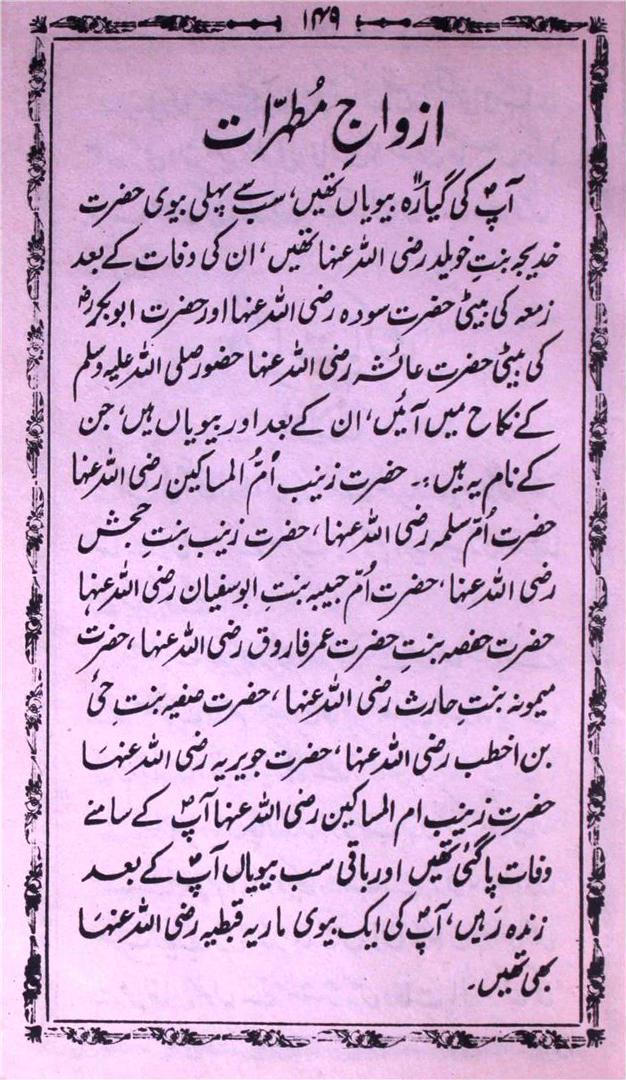 ۱۴۹
ازواجِ مُطہّرات
آپؐ کی گیارہ بیویاں تھیں، سب سے پہلی بیوی حضرت
خدیجہ بنتِ خویلد رضی اللہ عنہا تھیں، ان کی وفات کے بعد
زمعہ کی بیٹی حضرت سودہ رضی اللہ عنہا اور حضرت ابوبکرؓ
کی بیٹی حضرت عائشہ رضی اللہ عنہا حضور صلی اللہ علیہ وسلم
کے نکاح میں آئیں، ان کے بعد اور بیویاں ہیں، جن
کے نام یہ ہیں:۔ حضرت زینب اُمُّ المساکین رضی اللہ عنہا
حضرت اُمّ سلمہ رضی اللہ عنہا، حضرت زینب بنتِ حجش
رضی اللہ عنہا، حضرت اُمّ حبیبہ بنتِ ابوسفیان رضی اللہ عنہا
حضرت حفصہ بنتِ حضرت عمر فاروق رضی اللہ عنہا، حضرت
میمونہ بنتِ حارث رضی اللہ عنہا، حضرت صفیہ بنت حیٔ
بن اخطب رضی اللہ عنہا، حضرت جویریہ رضی اللہ عنہا
حضرت زینب ام المساکین رضی اللہ عنہا آپؐ کے سامنے
وفات پاگئی تھیں اور باقی سب بیویاں آپؐ کے بعد
زندہ رہیں، آپؐ کی ایک بیوی ماریہ قبطیہ رضی اللہ عنہا
بھی تھیں۔